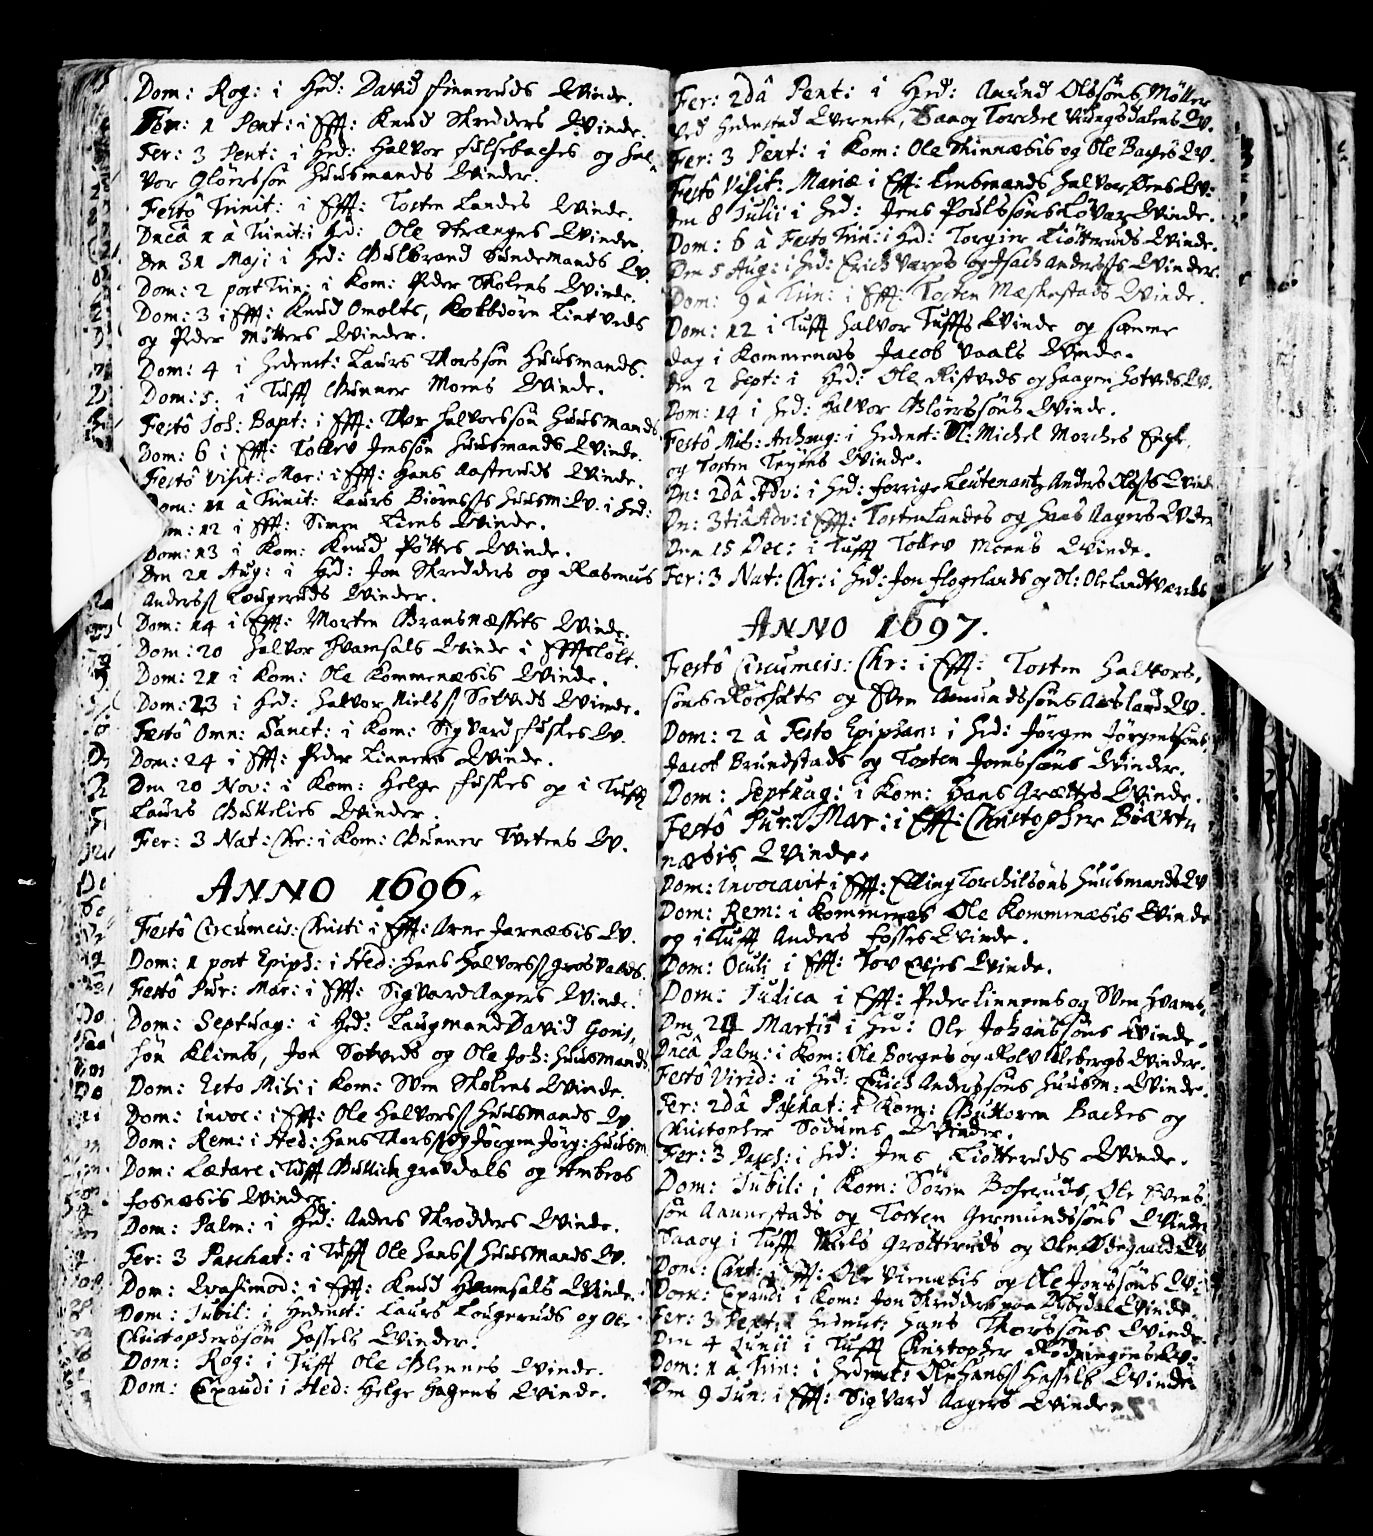 Dom: Rog: i Hed: David finneruds Qvinde.
Fer: 2 Pent: i Efft: Knud Skredders Qvinde.
Fer: 3 Pent: i Hed: Halvor fulsebaches og Hal-
vor Gloersøn Huusmands Qvinder.
Festô Trinit: i Efft: Tosten Landes Qvinde.
Dncâ 1 à Trinit: i Hed: Ole Strænges Qvinde.
Den 31 Maji i Hed: Gulbrand Sundemands Qv.
Dom: 2 post Trin: i Kom: Peder Skolens Qvinde.
Dom: 3 i Efft: Knud Omolts,
og Peder Møllers Qvinder.
Dom: 4 i Hedenst: Laurs Thorssøn Huusmands.
Dom: 5. i Tufft Gunner Moens Qvinde.
Festô Joh: Bapt: i Efft: Thor Halvorssøn Huusmands
Dom: 6 i Efft: Tollev Jenssøn Huusmands Qvinde.
Festô Visit: Mar: i Efft: Hans Aasteruds Qvinde.
Dom: 11 à Trinit: Laurs Biørness Huusm: Qv. i Hed:
Dom: 12 i Efft: Simen Qvinde.
Dom: 13 i Kom: Knud Pøttes Qvinde.
Den 21 Aug: i Hed: Jon Skredders og Rasmus
Anderss Lougeruds Qvinder.
Dom: 14 i Efft: Morten Bransnæssits Qvinde.
Dom: 20 Halvor Hvamsals Qvinde i Effteløtt.
Dom: 21 i Kom: Ole Kommenæsis Qvinde.
Dom: 23 i Hed: Halvor Nielss Sotveds Qvinde.
Festô Omn: Sanct: i Kom: Sigvard fuskes Qv.
Dom: 24 i Efft: Peder Linnens Qvinde.
Den 20 Nov: i Kom: Helge fuskes og i Tufft
Laurs Qvinder.
Fer: 3 Nat: Chr: i Kom: Gunner Tvetens Qv.
ANNO 1696.
Festô Circumcis: Christi i Efft: Arne Jarnæsis Qv.
Dom: 1 post Epiph: i Hed: Hans Halvorss Grosvalds.
Festô Pur: Mar: i Efft: Sigvard Aagers Qvinde.
Dom: Septuag: i Hed: Laugmand David Gonis,
søn Klims, Jon Sotveds og Ole Joh: Huusmands
Dom: Esto Mihi i Kom: Sven Skolens Qvinde.
Dom: Invoc: i Efft: Ole Halvorss Huusmands Qv.
Dom: Rem: i Hed: Hans Thorss og Jørgen Jørg: Huusm.
Dom: Lætare i Tufft Gullich gravdals og Ambros
fosnæsis Qvinder.
Dom: Palm: i Hed: Anders Skrødders Qvinde.
Fer: 3 Paschat: i Tufft Ole Hanss Huusmands Qv.
Dom: Qvasimod: i Efft: Knud Hvamsals Qvinde.
Dom: Jubil: i Hedenst: Laurs Lougeruds og Ole
Christophersøn Hassels Qvinder.
Dom: Rog: i Tufft Ole Glennes Qvinde.
Dom: Exaudi i Hed: Helge Hagens Qvinde.
Fer: 2dâ Pent: i Hed: Amund Olssøns Møller
ved Hedenstad Qvernen, Saaog Torchel Vingsdalens Qv.
Fer: 3 Pent: i Kom: Ole Skinnæsis og Ole Baches Qv.
Festô Visit: Mariæ i Efft: Lensmands Halvor Qv:
Den 8 Julii i Hed: Jens Poulssøns Qvinde.
Dom: 6 à Festo Trin: i Hed: Torgier Tiøtteruds Qvinde.
Den 5 Aug: i Hed: Erich og Isach Anderss Qvinder.
Dom: 9 à Trin: i Efft: Tosten Mæsenstads Qvinde.
Dom: 12 i Tufft Halvor Tuffts Qvinde og samme
dag i Kommenæs Jacob Vaals Qvinde.
Den 2 Sept: i Hed: Ole Ristveds og Haagen Hotveds Qv.
Dom: 14 i Hed: Halvor Gloerssøns Qvinde.
Festô Mich: Archang: i Hedenst: Sl: Michel Morches Enche.
og Tosten Qvinde.
Dn: 2dâ Adv: i Hed: forrige Leutenantz Anders Qvinde
Dn: 3tiâ Adv: i Efft: Tosten Landes og Hans Aagers Qvinder
Den 15 Dec: i Tufft Tollev Moens Qvinde.
Fer: 3 Nat: Chr: i Hed: Jon Hogelands og Sl: Ole Landtværds
ANNO 1697.
Festô Circumcis: Chr: i Efft: Tosten Halvors,
søns og Sven Amundssøns Aasland Qv.
Dom: 2 à Festo Epiphan: i Hed: Jørgen Jørgenssøns
Jacob Brundstads og Tosten Jonssøns Qvinder.
Dom: Septuag: i Kom: Hans Grættes Qvinde.
Festô Pur: Mar: i Efft: Christopher
næsis Qvinde.
Dom: Invocavit i Efft: Elling Torchilsøns Huusmands Qv
Dom: Rem: i Kommenæs Ole Kommenæsis Qvinde
og i Tufft Anders fosses Qvinde.
Dom: Oculi i Efft: Tov Qvinde.
Dom: Judica i Efft: Peder Linnens og Sven Hvams,
Den 21 Martii i Hed: Ole Johanssøns Qvinde.
Dncâ Palm: i Kom: Ole Borges og Rolv Ulebergs Qvinder.
Festô Virid: i Hed: Erich Anderssøns Huusm: Qvinde.
Fer: 2dâ Paschat: i Kom: Guttorm Baches og
Christopher Sodums Qvinder.
Fer: 3 Pasch: i Hed: Jens Tiøtteruds Qvinde.
Dom: Jubil: i Kom: Søren Boseruds, Ole Svens
søn Aannestads og Tosten Germundssøns Qvinder
Saaog i Tufft Niels Grotteruds og Ole Ødegaard Qv
Dom: Cant: i Efft: Ole Virnæsis og Ole Jonssøns Qv:
Dom: Exaudi i Kom: Jon Skredders paa Qvinde
Fer: 3 Pent: i Hedenst: Hans Thorssøns Qvinde
Den 4 Junii i Tufft Christopher Qv:
Dom: 1 à Trin: i Hedenst: Ole Hanss Hassels Qvinde
Den 9 Jun: i Efft: Sigvard Aagers Qvinde